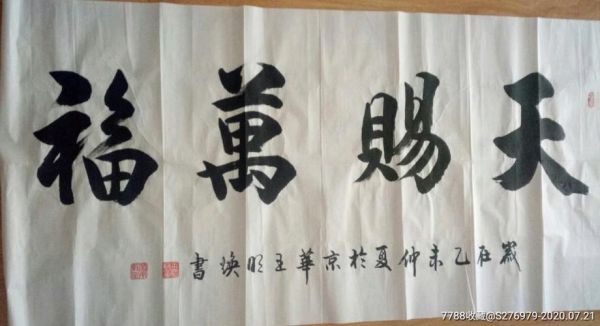 天賜萬福
歲在乙未仲夏於京華王明煥書
7788收藏@S276979-2020.07.21